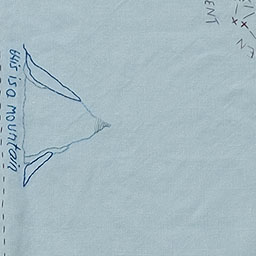 this is a mountain
ENT